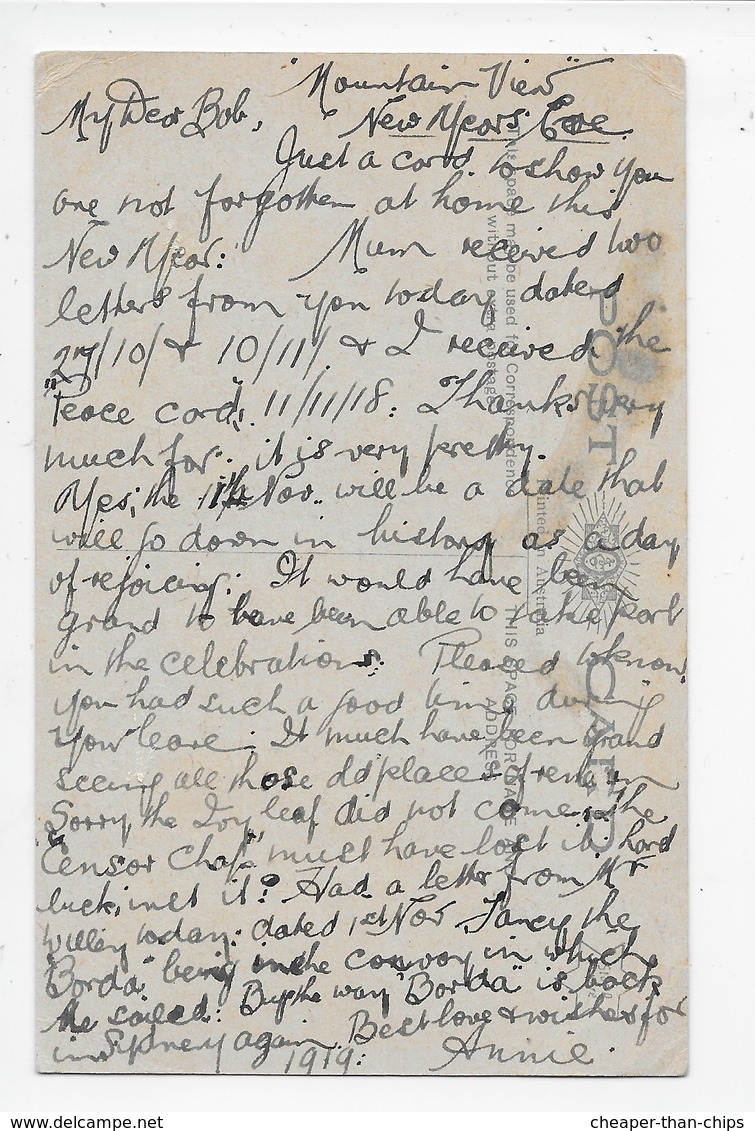 "Mountain View"
My Dear Bob,
New Years Eve.
Just a card to show you
are not forgotten at home this
New Year. Mum received two
letters from you today dated
27/10/ & 10/11/. & I received the
"Peace card", 11/11/18. Thanks very
much for it is very pretty.
Yes, the 11th Nov. will be a date that
will go down in history as a day
of rejoicing. It would have been
grand to have been able to take part
in the celebrations. Pleased to know
you had such a good time during
your leave. It must have been grand
seeing all those old places of
Sorry the Ivy leaf did not come the
"Censor Chap" must have lost it: hard
luck, isnt it? Had a letter from Mr
Willey today: dated 1st Nov Fancy the
"Borda" being in the convoy in which
he sailed: By the way "Borda" is back
in Sydney again. Best love & wishes for
1919: Annie.
POST CARD
This space may be used for Correspondence
without extra Postage
Printed in Australia
THIS SPACE FOR NAME AND
ADDRESS
cheaper-than-chips